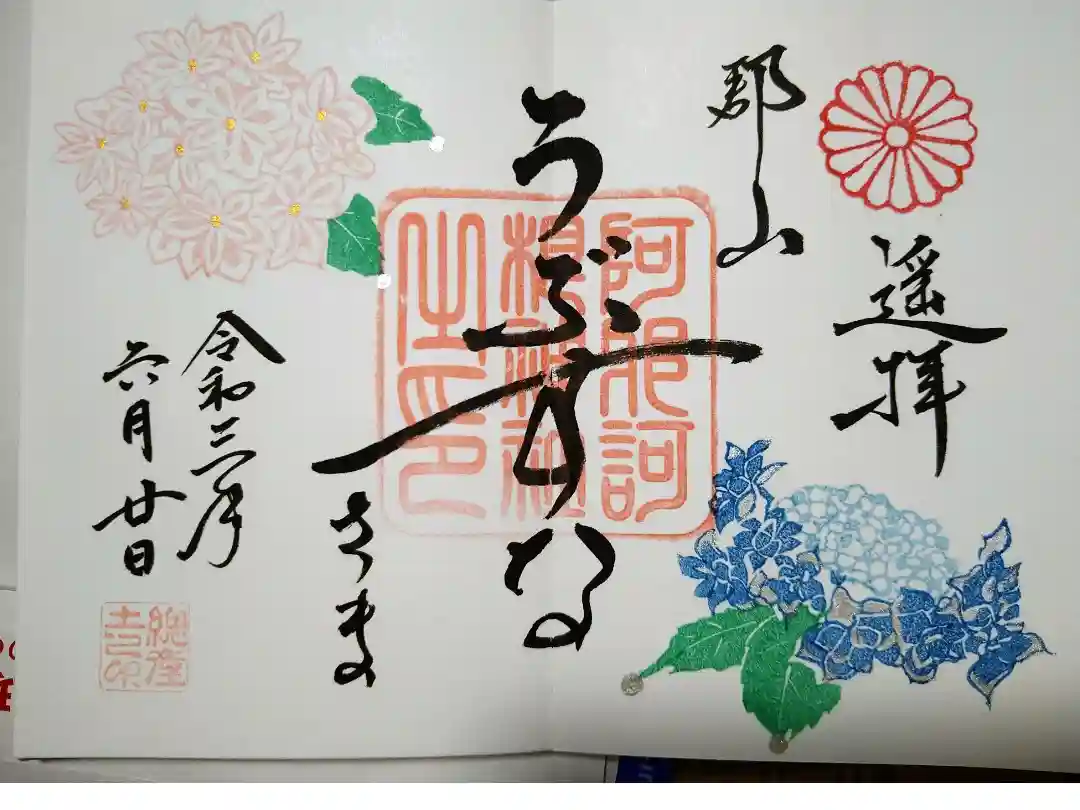 遥拝
郡山
うぶすな
さま
阿邪訶
根神社
之印
令和三年
六月廿日
總産